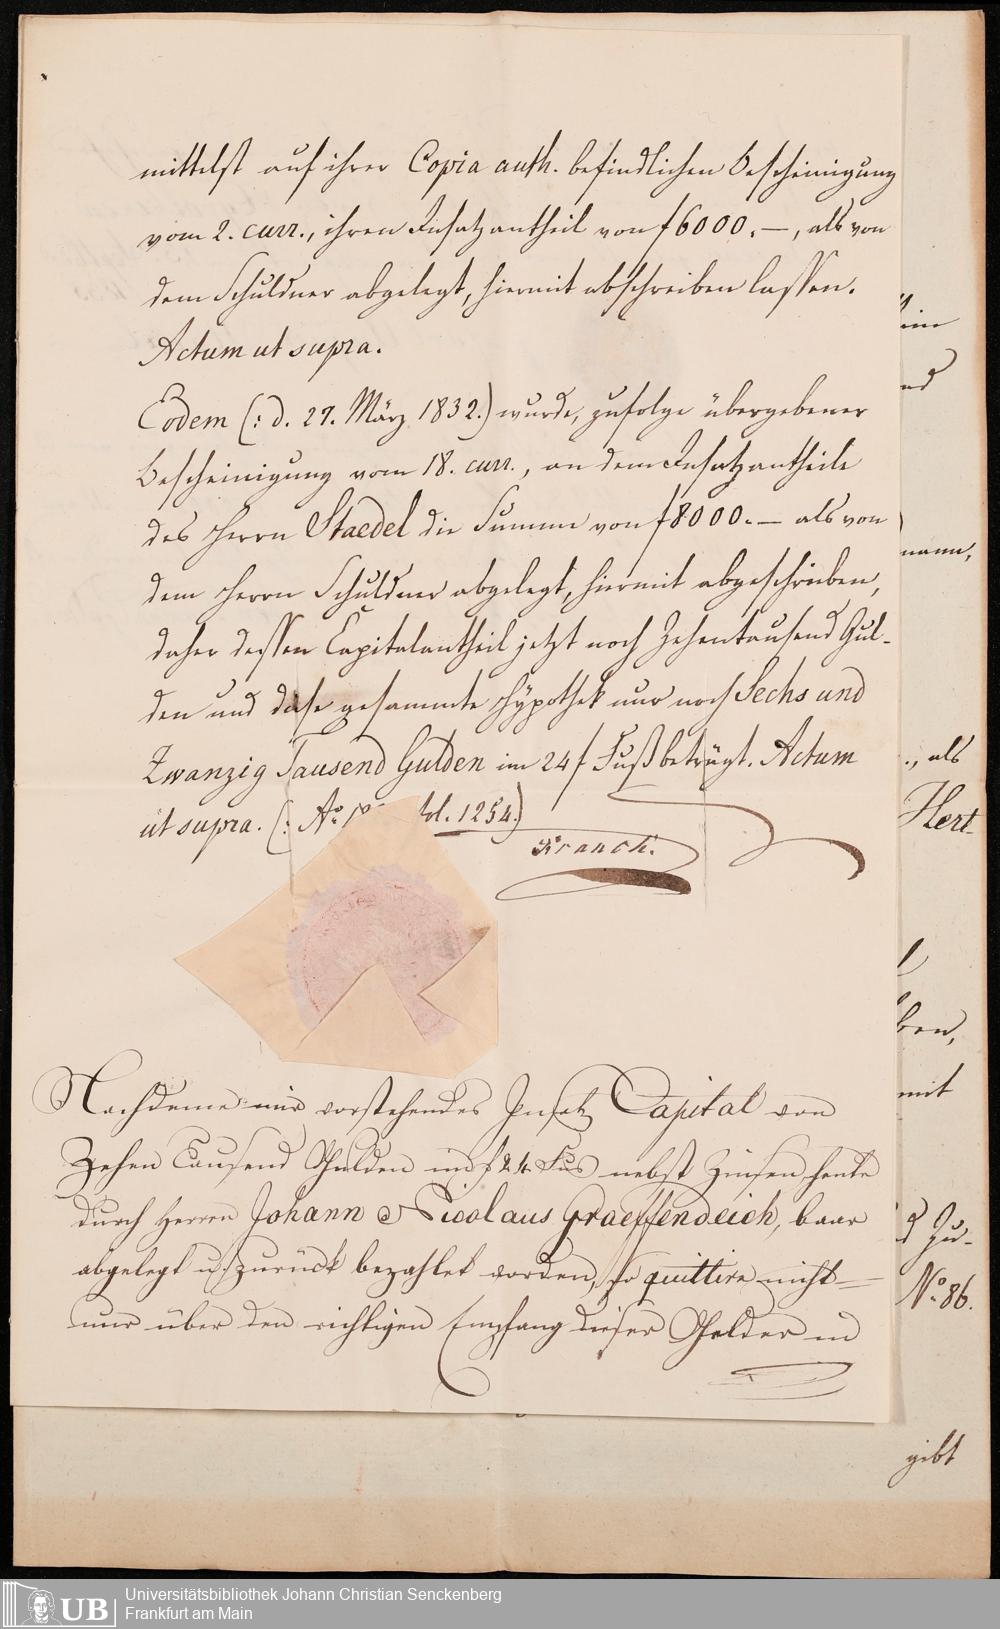 mittelst auf ihrer Copia auth. befindlichen Bescheinigung
vom 2. curr., ihren Insatzantheil von f 6000.—, als von
dem Schuldner abgelegt, hiermit abschreiben lassen.
Actum ut supra.
Eodem (: d. 27. März 1832.) wurde, zufolge übergebener
Bescheinigung vom 18. curr., an dem Insatzantheile
des Herrn Staedel die Summe von f 8000.— als von
dem Herrn Schuldner abgelegt, hiermit abgeschrieben,
daher dessen Capitalantheil jetzt noch Zehentausend Gul-
den und diese gesammte Hypothek nur noch Sechs und
Zwanzig Tausend Gulden im 24 f Fuß beträgt. Actum
ut supra. (: Ao. fol. 1254.)
Nachdeme mir vorstehendes Insatz Capital von
Zehen Tausend Gulden im f 24 Fus nebst Zinsen heute
durch Herren Johann Nicolaus Graeffendeich, baar
abgelegt u. zurück bezahlet worden, so quittire nicht
nur über den richtigen Empfang dieser Gelder in
nd
mann,
., als
Hert-
ben,
mit
d Zu-
No. 86.
gibt
UB
Universitätsbibliothek Johann Christian Senckenberg
Frankfurt am Main